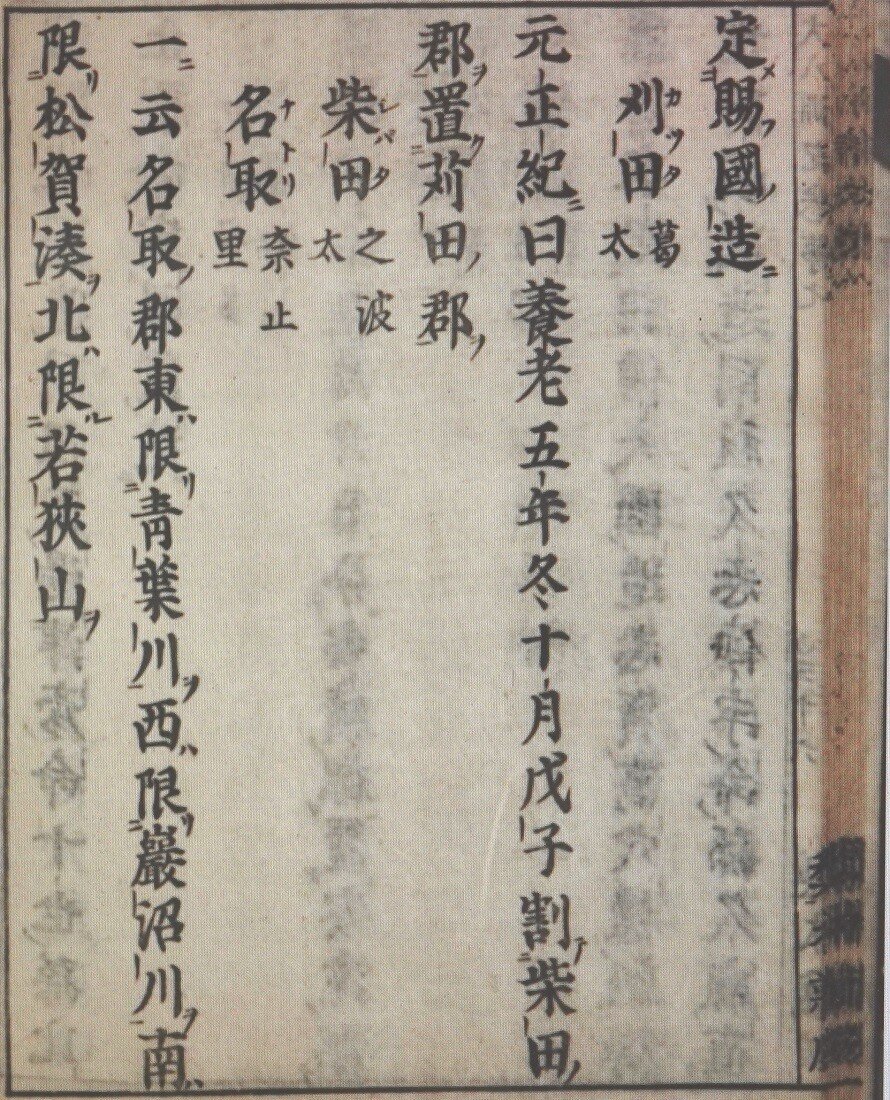 定賜國造
刈田 葛太
元正紀曰養老五年冬十月戊子割柴田
郡置苅田郡
柴田 之波太
名取 奈止里
一云名取郡東限青葉川西限巖沼川南
限松賀湊北限若狹山